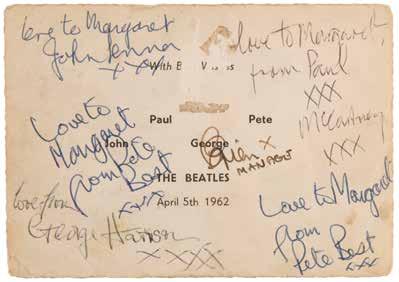 Love to Margaret
John Lennon
xxx
Love to Margaret,
from Paul
xxx
McCartney
xxx
With B
Paul Pete
John George
THE BEATLES
April 5th 1962
Love to
Margaret
from Pete
Best
xxx
Brian x
MANAGER
love from
George Harrison
x xxxx
Love to Margaret
from
Pete Best
xxx